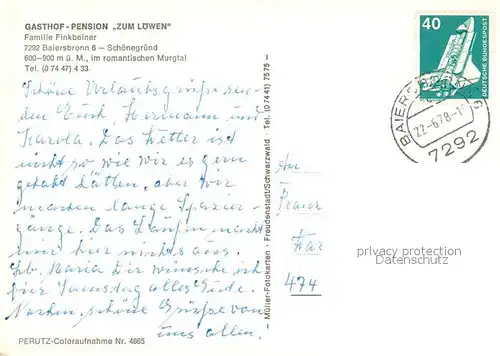 GASTHOF - PENSION „ZUM LÖWEN"
Familie Finkbeiner
7292 Baiersbronn 6 — Schönegründ
600–900 m ü. M., im romantischen Murgtal
Tel. (0 74 47) 4 33
Schöne Urlaubsgrüße sen-
den Euch, Hermann und
Karola. Das Wetter ist
nicht so wie wir es gern
gehabt hätten, aber wir
machen lange Spazier-
gänge. Das Laufen macht
mir hier nichts aus.
Lb. Maria Dir wünsche ich
für Samstag alles Gute.
Nochm. schöne Grüße von
uns allen.
PERUTZ-Coloraufnahme Nr. 4865
— Müller-Fotokarten - Freudenstadt/Schwarzwald - Tel. (0 74 41) 7575 —
40
DEUTSCHE BUNDESPOST
BAIERSBRONN
22.-6.78-1
7292
An
474
privacy protection
Datenschutz